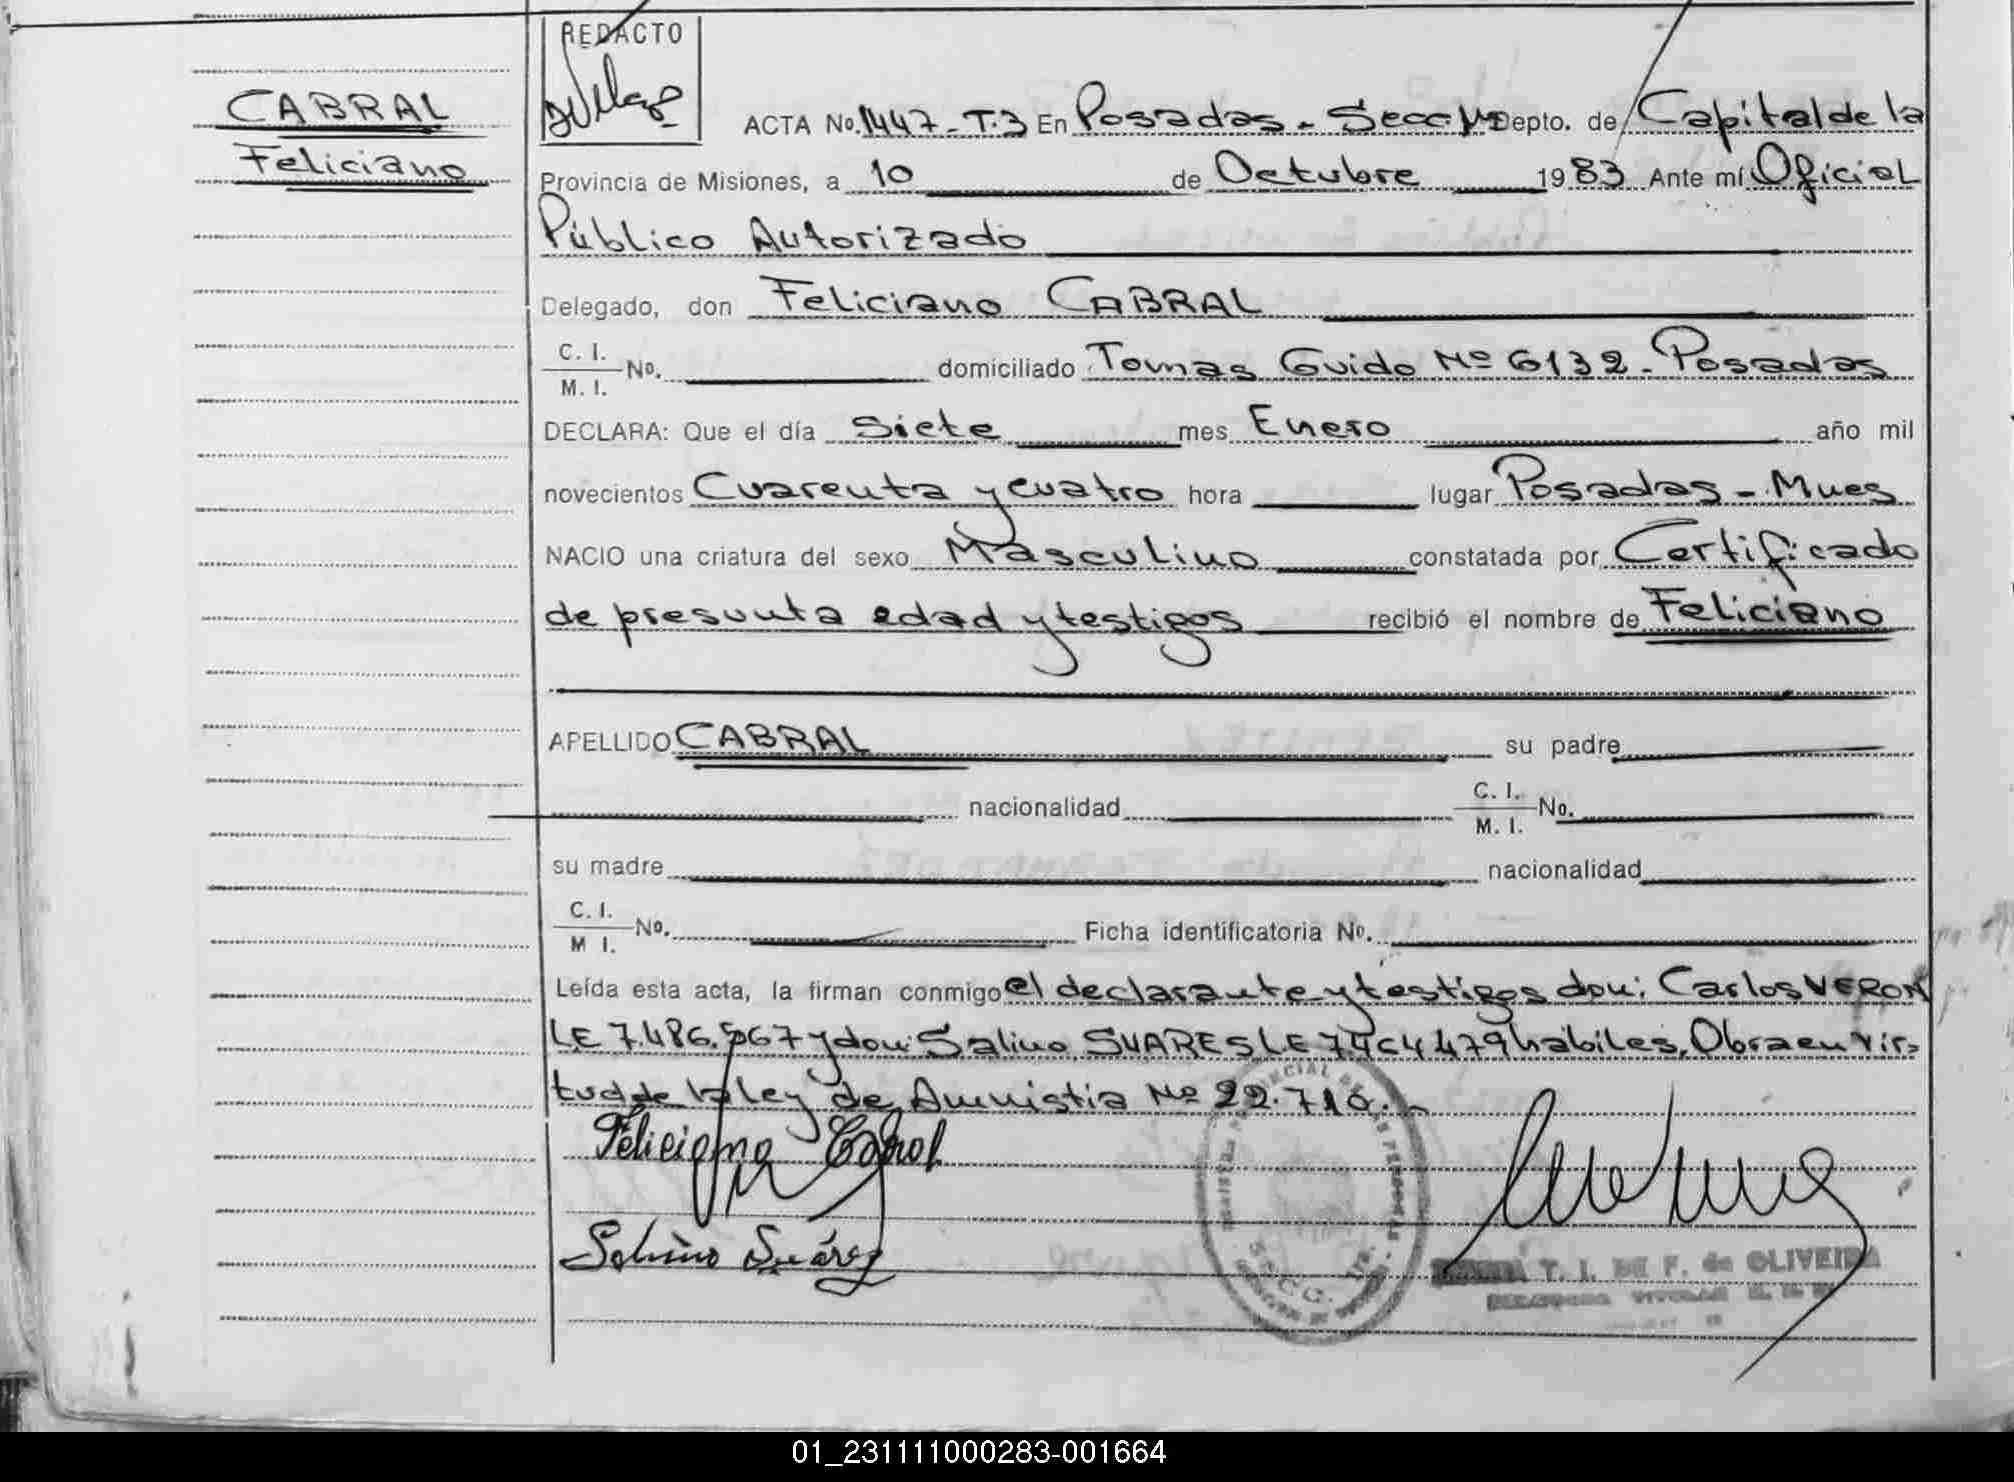 CABRAL
Feliciano
REDACTO
ACTA No. 1447-T.3 En Posadas - Secc Depto. de Capital de la
Provincia de Misiones, a 10 de Octubre 1983 Ante mí Oficial
Público Autorizado
Delegado, don Feliciano CABRAL
C. I. / M. I. No. domiciliado Tomas Guido Nº 6132 - Posadas
DECLARA: Que el día Siete mes Enero año mil
novecientos Cuarenta y cuatro hora lugar Posadas - Mnes
NACIO una criatura del sexo Masculino constatada por Certificado
de presunta edad y testigos recibió el nombre de Feliciano
APELLIDO CABRAL su padre
nacionalidad C. I. / M. I. No.
su madre nacionalidad
C. I. / M I. No. Ficha identificatoria No.
Leída esta acta, la firman conmigo el declarante y testigos don: Carlos VERON
LE 7.486.567 y don: Salino SUARES LE habiles, Obra en vir-
tud de la ley de Amnistia Nº 22.710.-
Feliciano Cabral
Suárez
T. I. DE F. de OLIVEIRA
01_231111000283-001664